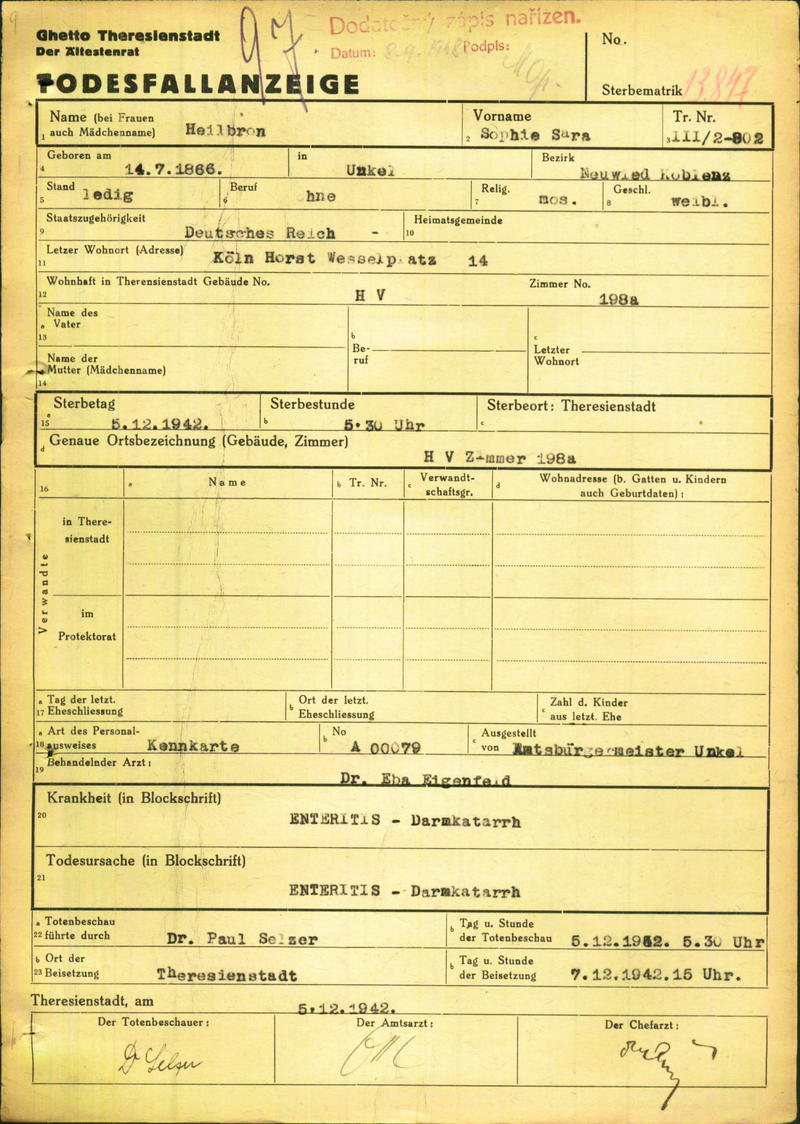 Ghetto Theresienstadt
Der Ältestenrat
TODESFALLANZEIGE
97
Dodatečný zápis nařízen.
Datum: Podpis:
No.
Sterbematrik 13847
Name (bei Frauen
1 auch Mädchenname) Heilbron
Vorname
2 Sophie Sara
Tr. Nr.
3 III/2-802
Geboren am
4 14.7.1866.
in
Unkel
Bezirk
Neuwied Koblenz
Stand
5 ledig
Beruf
6 hne
Relig.
7 mos.
Geschl.
8 weibl.
Staatszugehörigkeit
9 Deutsches Reich -
Heimatsgemeinde
10
Letzer Wohnort (Adresse)
11 Köln Horst Wesselplatz 14
Wohnhaft in Therensienstadt Gebäude No.
12 H V
Zimmer No.
198a
Name des
a Vater
13
b
Be-
ruf
c
Letzter
Wohnort
Name der
Mutter (Mädchenname)
14
Sterbetag
a
15 5.12.1942.
Sterbestunde
b 5.30 Uhr
Sterbeort: Theresienstadt
c
d Genaue Ortsbezeichnung (Gebäude, Zimmer)
H V Z-mmer 198a
16
a Name
b Tr. Nr.
c Verwandt-
schaftsgr.
d Wohnadresse (b. Gatten u. Kindern
auch Geburtdaten):
Verwandte
in There-
sienstadt
im
Protektorat
a Tag der letzt.
17 Eheschliessung
b Ort der letzt.
Eheschliessung
c Zahl d. Kinder
aus letzt. Ehe
a Art des Personal-
18 ausweises Kennkarte
b No
A 00079
c Ausgestellt
von Amtsbürgermeister Unkel
Behandelnder Arzt:
19 Dr. Eba Eigenfeld
Krankheit (in Blockschrift)
20 ENTERITIS - Darmkatarrh
Todesursache (in Blockschrift)
21
ENTERITIS - Darmkatarrh
a Totenbeschau
22 führte durch Dr. Paul Selzer
b Tag u. Stunde
der Totenbeschau 5.12.1942. 5.30 Uhr
b Ort der
23 Beisetzung Theresienstadt
b Tag u. Stunde
der Beisetzung 7.12.1942.15 Uhr.
Theresienstadt, am 5.12.1942.
Der Totenbeschauer:
Der Amtsarzt:
Der Chefarzt:
Dr Selzer